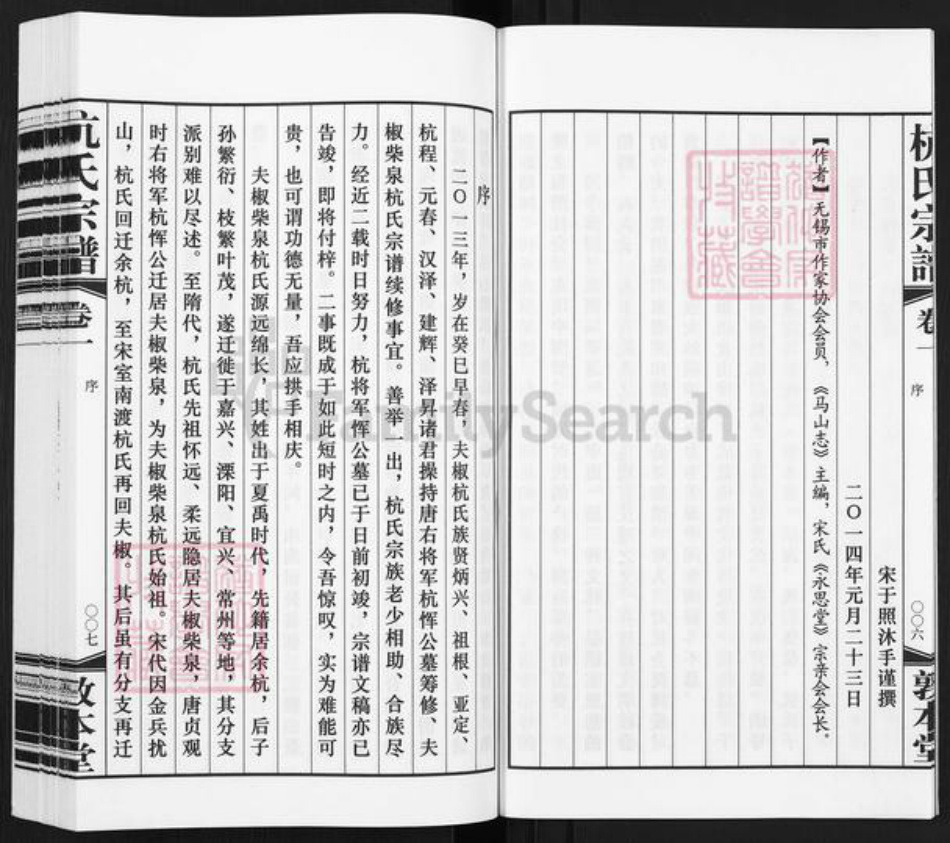 杭氏宗谱
卷一
序
〇〇六
敦本堂
宋于照沐手谨撰
二〇一四年元月二十三日
【作者】无锡市作家协会会员，《马山志》主编，宋氏《永思堂》宗亲会会长。
序
二〇一三年，岁在癸巳早春，夫椒杭氏族贤炳兴、祖根、亚定、
杭程、元春、汉泽、建辉、泽昇诸君操持唐右将军杭恽公墓筹修、夫
椒柴泉杭氏宗谱续修事宜。善举一出，杭氏宗族老少相助、合族尽
力。经近二载时日努力，杭将军恽公墓已于日前初竣，宗谱文稿亦已
告竣，即将付梓。二事既成于如此短时之内，令吾惊叹，实为难能可
贵，也可谓功德无量，吾应拱手相庆。
夫椒柴泉杭氏源远绵长，其姓出于夏禹时代，先籍居余杭，后子
孙繁衍、枝繁叶茂，遂迁徙于嘉兴、溧阳、宜兴、常州等地，其分支
派别难以尽述。至隋代，杭氏先祖怀远、柔远隐居夫椒柴泉，唐贞观
时右将军杭恽公迁居夫椒柴泉，为夫椒柴泉杭氏始祖。宋代因金兵扰
山，杭氏回迁余杭，至宋室南渡杭氏再回夫椒。其后虽有分支再迁
杭氏宗谱
卷一
序
〇〇七
敦本堂
FamilySearch